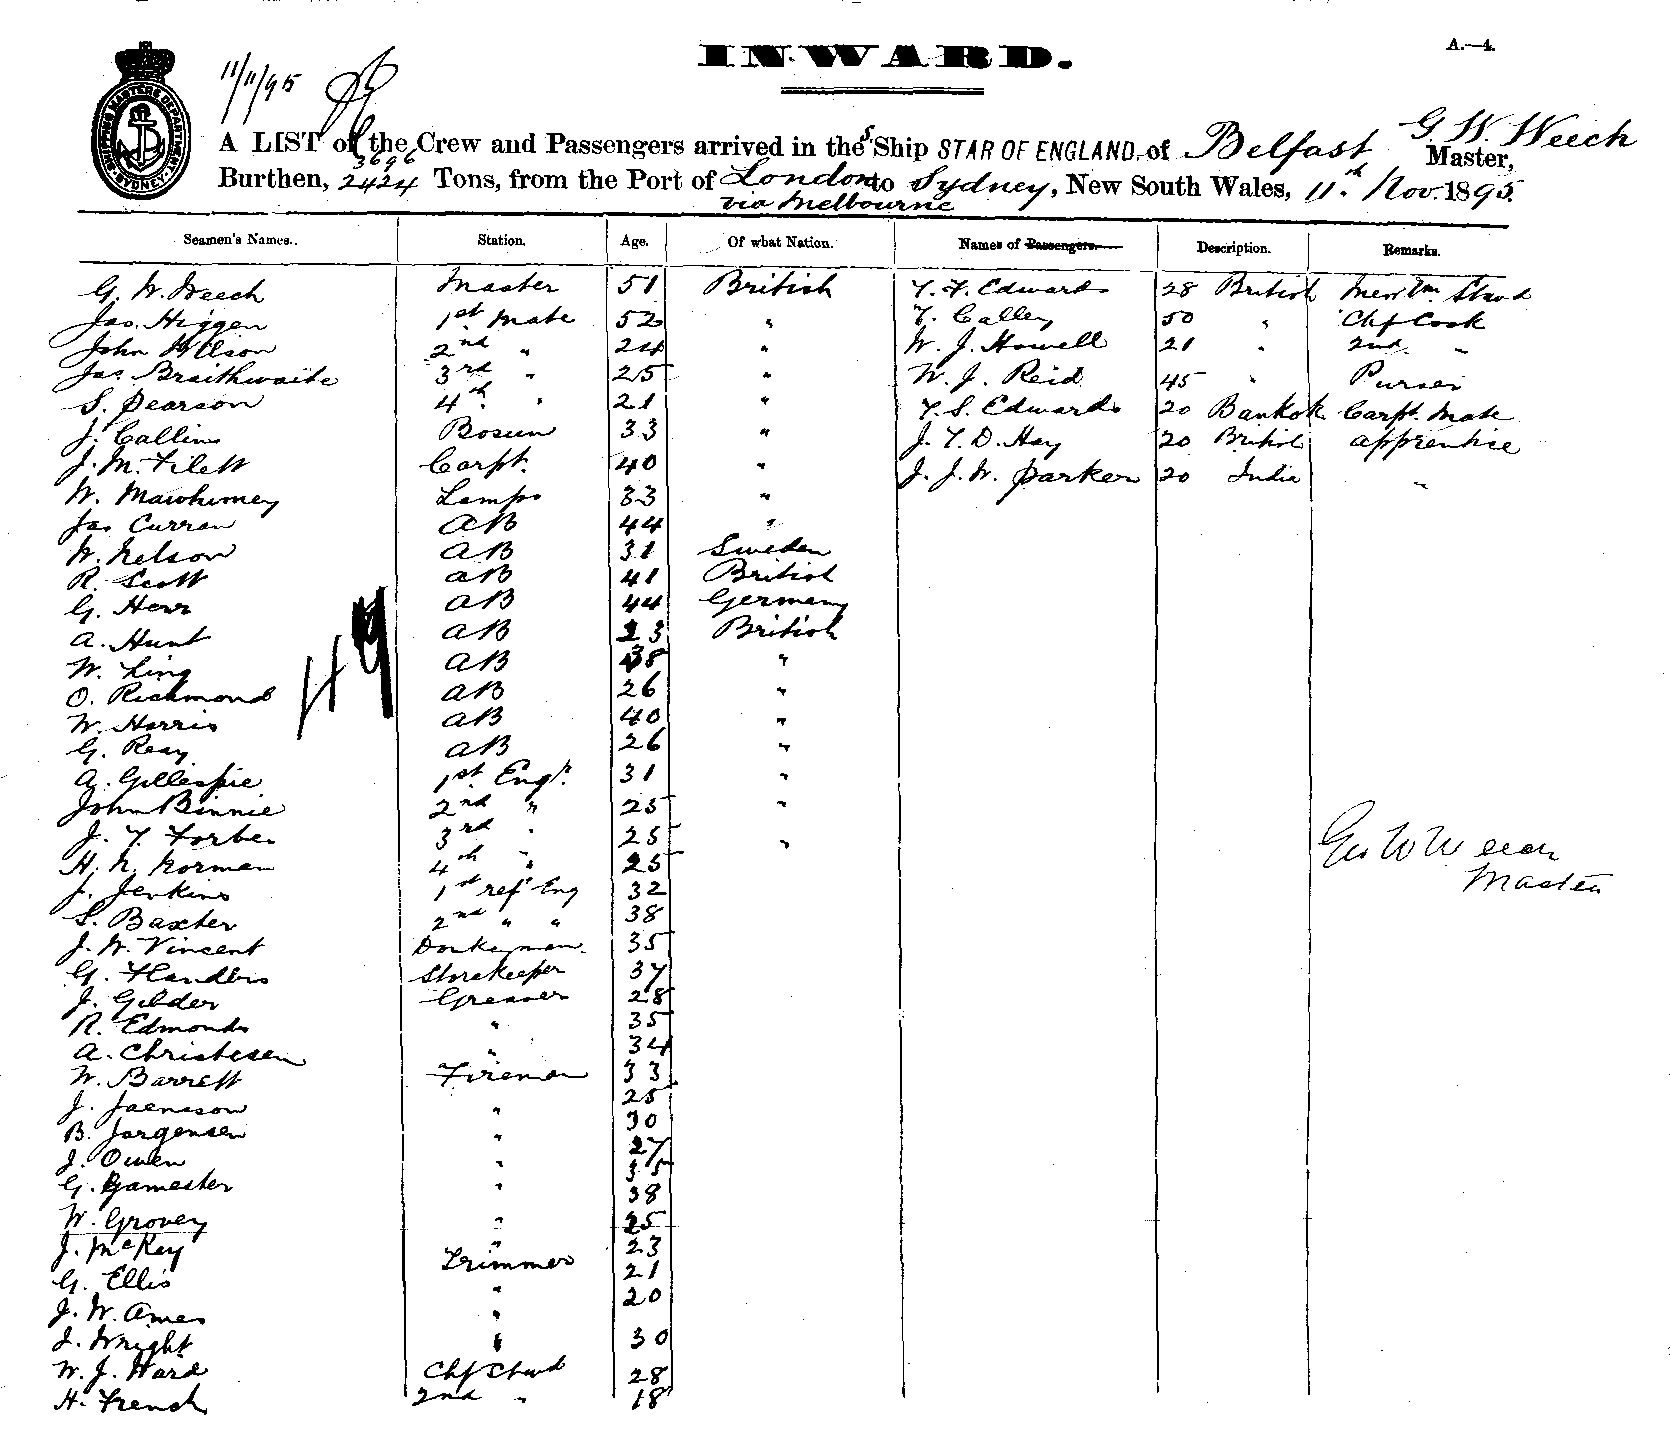 INWARD.
A.—4.
11/11/95
SHIPPING MASTERS DEPARTMENT SYDNEY
G. W. Weech
A LIST of the Crew and Passengers arrived in the S Ship STAR OF ENGLAND, of Belfast Master,
3696
Burthen, 2424 Tons, from the Port of London to Sydney, New South Wales, 11th Nov. 1895.
via Melbourne
Seamen's Names. Station. Age. Of what Nation. Names of Passengers. Description. Remarks.
G. W. Weech Master 51 British T. F. Edwards 28 British Stwd
Jas. Higgen 1st Mate 52 " T. Calley 50 " Chf Cook
John Wilson 2nd " 24 " W. J. Howell 21 " 2nd "
Jas. Braithwaite 3rd " 25 " W. J. Reid 45 " Purser
S. Pearson 4th " 21 " T. S. Edwards 20 Bankok Carpt. Mate
J. Callins Bosun 33 " J. T. D. Hay 20 British apprentice
J. M. Filett Carpt. 40 " J. J. W. Parker 20 India "
W. Mawhinney Lamps 33 "
Jas Curran AB 44 "
W. Nelson AB 31 Sweden
R. Scott AB 41 British
G. Herr AB 44 Germany
A. Hunt AB 23 British
W. King AB 38 "
O. Richmond AB 26 "
W. Harris AB 40 "
G. Reay AB 26 "
A. Gillespie 1st Engr. 31 "
John Binnie 2nd " 25 "
J. T. Forbes 3rd " 25 "
H. N. Norman 4th " 25
J. Jenkins 1st ref Eng 32
S. Baxter 2nd " " 38
J. W. Vincent Donkeyman 35
G. Flanders Storekeeper 37
J. Gilder Greaser 28
R. Edmonds " 35
A. Christesen " 34
W. Barrett Fireman 33
J. Jaensson " 25
B. Jorgensen " 30
J. Owen " 27
G. Gamester " 35
W. Grovey " 38
J. McKay " 25
G. Ellis Trimmer 23
J. W. Ames " 21
J. Wright " 20
W. J. Ward Chf Stwd 30
H. French 2nd " 28
18
49
Geo W Weech
Master